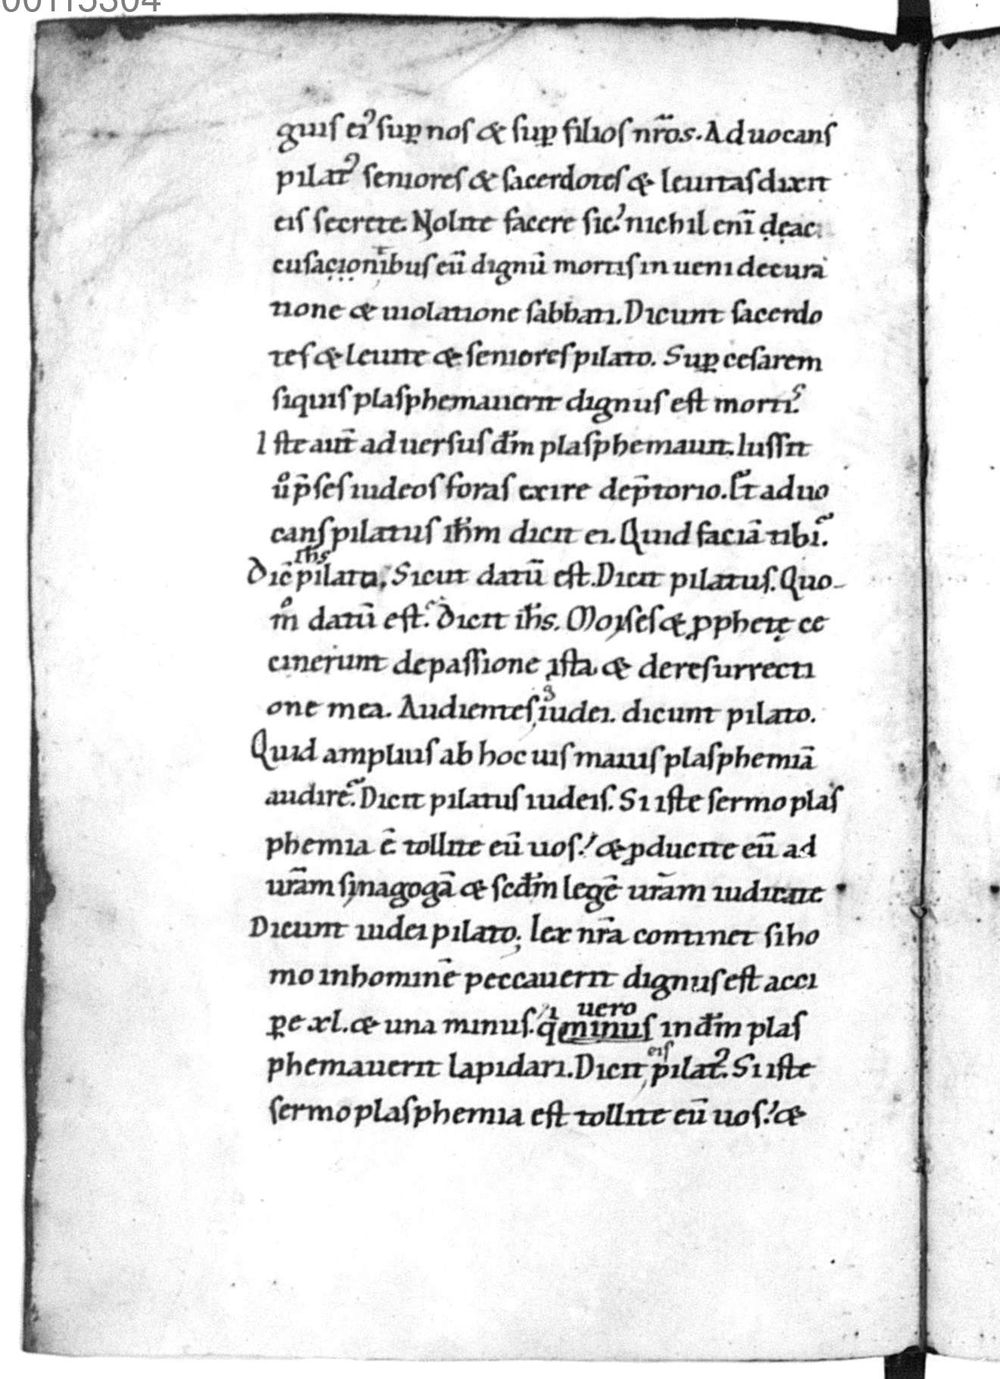 00115304
guis ei᾽ sup̱ nos & sup̱ filios nr̄os. Aduocans
pilat᾽ seniores & sacerdotes & leuitas dixit
eis secrete. Nolite facere sic. nichil enī de ac
cusacionibus eū dignū mortis inueni de cura
tione & uiolatione sabbati. Dicunt sacerdo
tes & leuite & seniores pilato. Sup̱ cesarem
siquis plasphemauerit dignus est morti᾽.
Iste aūt aduersus dm̄ plasphemauit. Iussit
ů p̄ses iudeos foras exire de p̄torio. Et aduo
cans pilatus ih̄m dicit ei. Quid faciā tibi.
Dič ih̄s pilato, Sicut datū est. Dicit pilatus. Quo-
m̊ datū est. dicit ih̄s. Moyses & ꝓphetę ce
cinerunt de passione ista & de resurrecti
one mea. Audientes iudei. dicunt pilato.
Quid amplius ab hoc uis maius plasphemiā
audire. Dicit pilatus iudeis. Si iste sermo plas
phemia ē tollite eū uos. & ꝓducite eū ad
ur̄am synagogā & scdm̄ legē ur̄am iudicate
Dicunt iudei pilato; lex nr̄a continet si ho
mo in hominē peccauerit dignus est acci
p̱e xl. & una minus. qi uero minus in dm̄ plas
phemauerit lapidari. Dicit eis pilat᾽. Si iste
sermo plasphemia est tollite eū uos. &